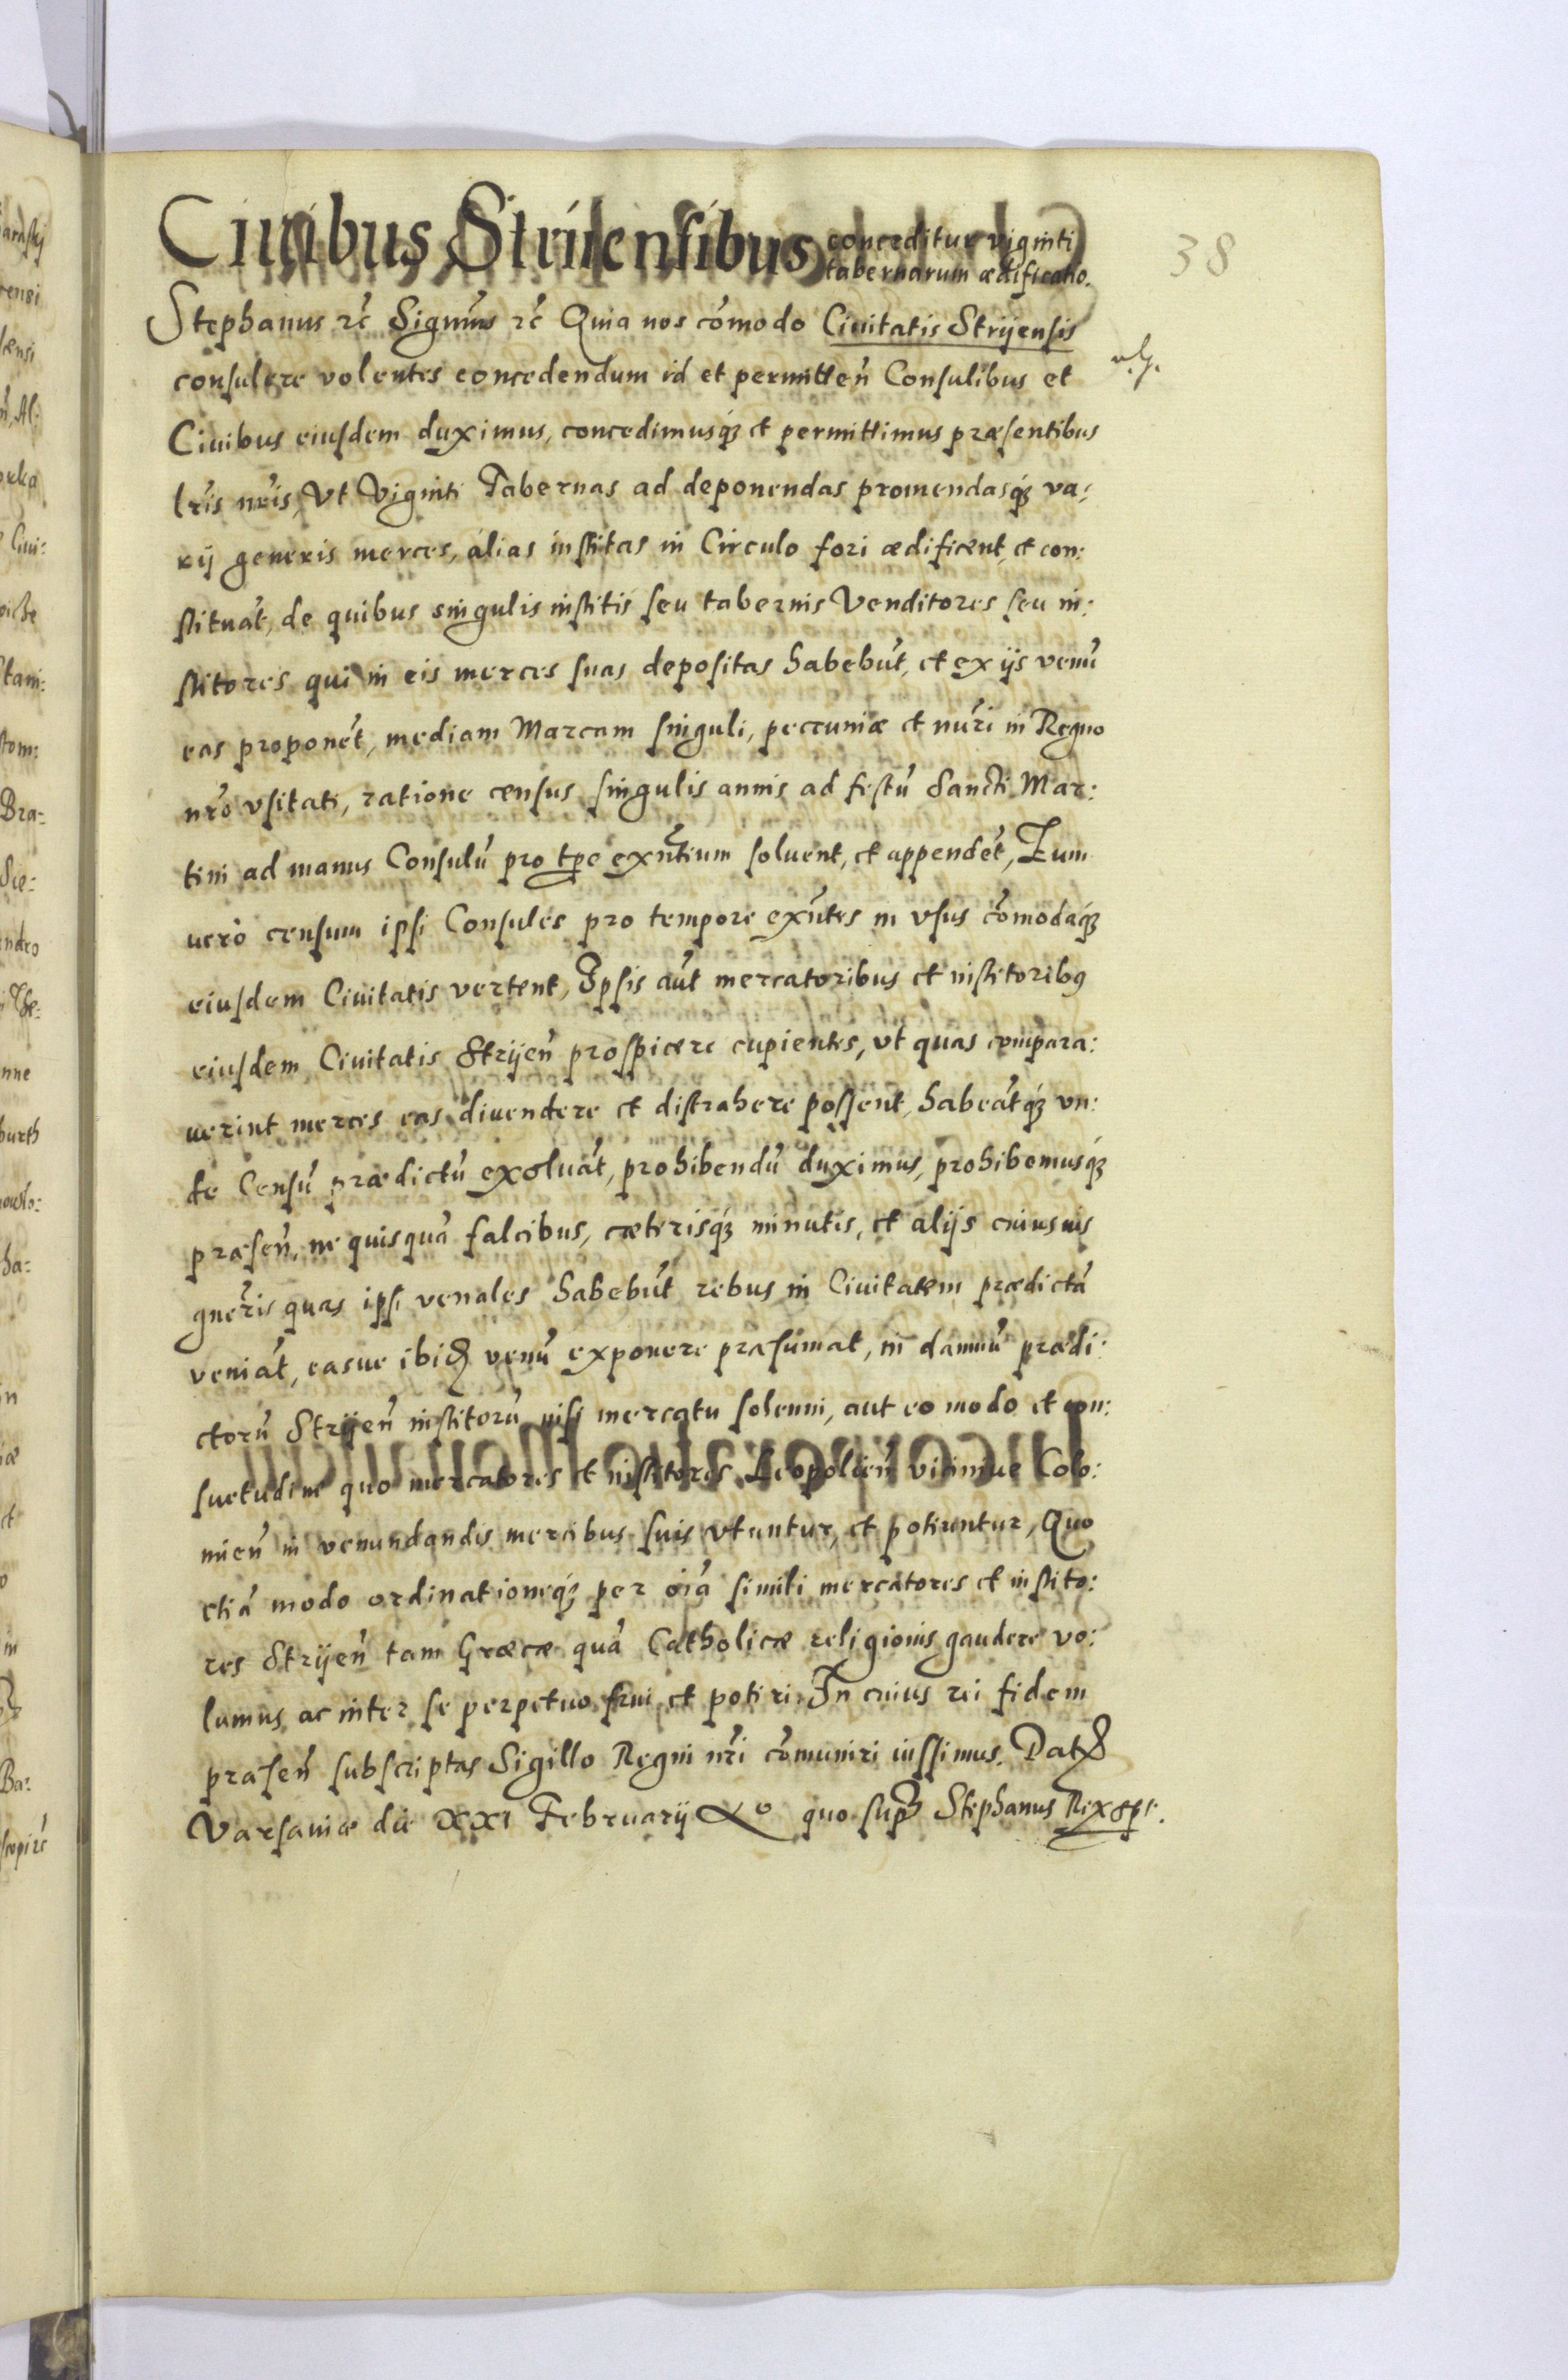 38
Ciuibus Strijensibus conceditur viginti
tabernarum ædificatio.
Stephanus rc̃ Signũs rc̃ Quia nos cõmodo Ciuitatis Strijensis
consulere volentes concedendum id et permitteñ Consulibus et
Ciuibus eiusdem duximus, concedimusq́ꝫ et permittimus præsentibus
lr̃is nr̃is, Vt Viginti Tabernas ad deponendas promendasq́ꝫ va:
rij generis merces, alias institas in Circulo fori ædificent, et con:
stituãt, de quibus singulis institis seu tabernis Venditores seu in:
stitores qui in eis merces suas depositas habebũt, et ex ijs venũ
eas proponẽt, mediam Marcam singuli, pecuniæ et nũri in Regno
nr̃o vsitati, ratione census singulis annis ad festũ Sancti Mar:
tini ad manus Consulũ pro tp̃e exñtium soluent, et appendẽt, Eum
uerò censum ipsi Consules pro tempore exñtes in vsus cõmodaq́ꝫ
eiusdem Ciuitatis vertent, Ipsis aũt mercatoribus et institoribꝰ
eiusdem Ciuitatis Strijeñ prospicere cupientes, vt quas compara:
uerint merces eas diuendere et distrahere possent, habeãtq́ꝫ vn:
de Censũ prædictũ exoluãt, prohibendũ duximus, prohibemusq́ꝫ
præseñ. ne quisquã falcibus, cæterisq́ꝫ minutis, et alijs cuiusuis
gnẽris quas ipsi venales habebũt rebus in Ciuitatem prædictã
veniãt, easue ibid̃ venũ exponere præsumat, in damnũ prædi:
ctorũ Strijeñ institorũ nisi mercatu solenni, aut eo modo et con:
suetudine quo mercatores et institores Leopolieñ vicinive Colo:
mieñ in venundandis mercibus suis vtuntur, et potiuntur, Quo
etiã modo ordinationeq́ꝫ per õia simili mercatores et instito:
res Strijeñ tam Græcæ quã Catholicæ religionis gaudere vo:
lumus, ac inter se perpetuo frui et potiri. In cuius rei fidem
præseñ subscriptas Sigillo Regni nr̃i cõmuniri iussimus. Dat̃
Varsauiæ die XXI Februarij Aº quo sup̃ Stephanus Rex sp̃t.